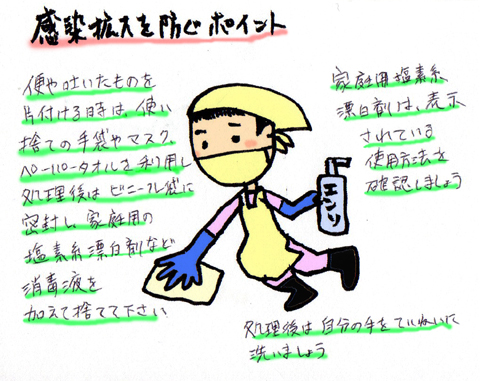 感染拡大を防ぐポイント
便や吐いたものを
片付ける時は、使い
捨ての手袋やマスク、
ペーパータオルを利用し
処理後はビニール袋に
密封し、家庭用の
塩素系漂白剤など
消毒液を
加えて捨てて下さい
家庭用塩素系
漂白剤は、表示
されている
使用方法を
確認しましょう
エンソ
処理後は自分の手をていねいに
洗いましょう